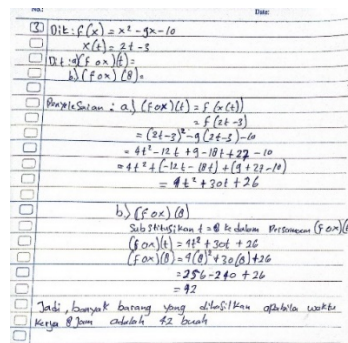 No: Date:
3. Dik: f(x) = x² - 9x - 10
x(t) = 2t - 3
Dit: a) (f o x)(t) =
b) (f o x) (8) =
Penyelesaian : a) (f o x)(t) = f (x(t))
= f (2t - 3)
= (2t - 3)² - 9(2t - 3) - 10
= 4t² - 12t + 9 - 18t + 27 - 10
= 4t² + (-12t - 18t) + (9 + 27 - 10)
= 4t² + 30t + 26
b) (f o x) (8)
Substitusikan t = 8 ke dalam Persamaan (f o x)(t)
(f o x)(t) = 4t² + 30t + 26
(f o x)(8) = 4(8)² + 30(8) + 26
= 256 - 240 + 26
= 42
Jadi, banyak barang yang dihasilkan apabila waktu
kerja 8 Jam adalah 42 buah